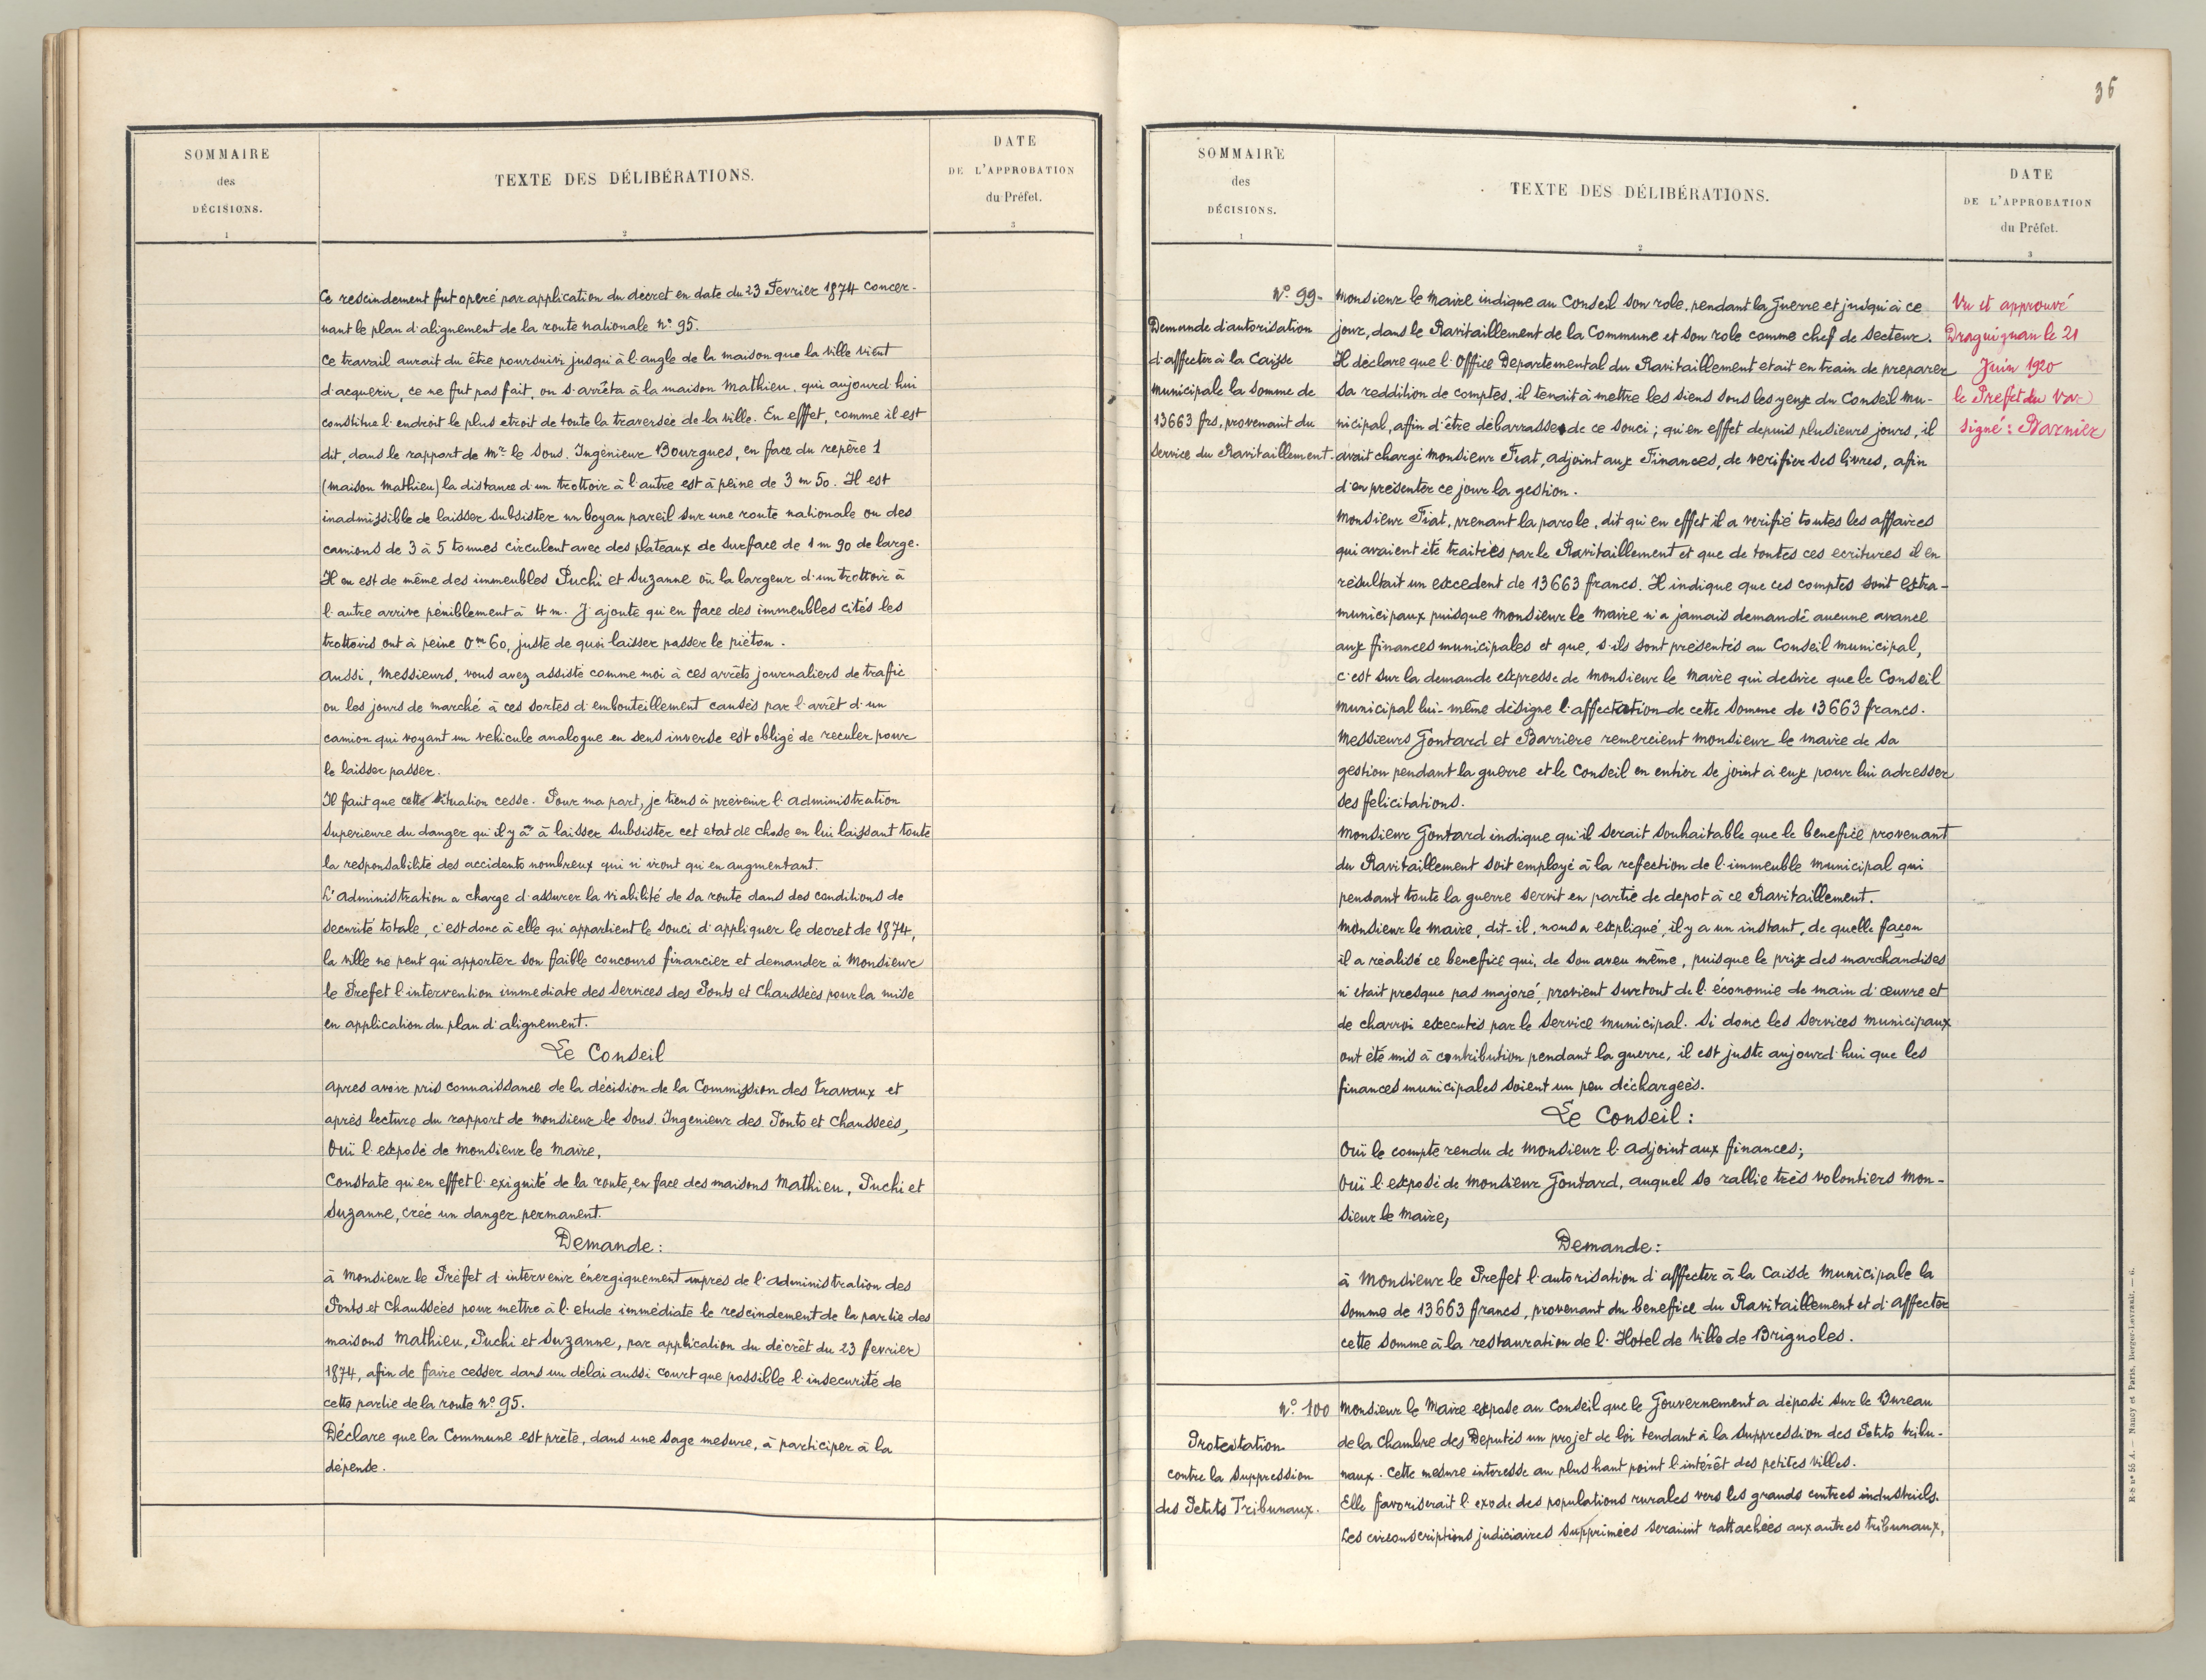 SOMMAIRE
des
DÉCISIONS.
1
TEXTE DES DÉLIBÉRATIONS.
2
DATE
DE L'APPROBATION
du Préfet.
3
Ce rescindement fut opéré par application du décret en date du 23 Fevrier 1874 concer-
nant le plan d'alignement de la route nationale n° 95.
Ce travail aurait du être poursuivi jusqu'à l'angle de la maison que la ville vient
d'acquerir, ce ne fut pas fait, on s'arrêta à la maison Mathieu, qui aujourd'hui
constitue l'endroit le plus etroit de toute la traversée de la ville. En effet, comme il est
dit, dans le rapport de Mr le Sous. Ingénieur Bourgues, en face du repère 1
(maison Mathieu) la distance d'un trottoir à l'autre est à peine de 3 m 50. Il est
inadmissible de laisser subsister un boyau pareil sur une route nationale ou des
camions de 3 à 5 tonnes circulent avec des plateaux de surface de 1 m 90 de large.
Il en est de même des immeubles Puchi et Suzanne où la largeur d'un trottoir à
l'autre arrive péniblement à 4 m. J'ajoute qu'en face des immeubles cités les
trottoirs ont à peine 0m 60, juste de quoi laisser passer le piéton.
Aussi, Messieurs, vous avez assisté comme moi à ces arrêts journaliers de trafic
ou les jours de marché à ces sortes d'embouteillement causés par l'arrêt d'un
camion qui voyant un vehicule analogue en sens inverse est obligé de reculer pour
le laisser passer.
Il faut que cette situation cesse. Pour ma part, je tiens à prévenir l'administration
Superieure du danger qu'il y a à laisser subsister cet etat de chose en lui laissant toute
la responsabilité des accidents nombreux qui n'iront qu'en augmentant.
L'administration a charge d'assurer la viabilité de sa route dans des conditions de
securité totale, c'est donc à elle qu'appartient le souci d'appliquer le decret de 1874,
la ville ne peut qu'apporter son faible concours financier et demander à Monsieur
le Prefet l'intervention immediate des services des Ponts et Chaussées pour la mise
en application du plan d'alignement.
Le Conseil
Apres avoir pris connaissance de la décision de la Commission des travaux et
après lecture du rapport de Monsieur le Sous Ingenieur des Ponts et Chaussées,
Ouï l'exposé de Monsieur le Maire,
Constate qu'en effet l'exiguité de la route, en face des maisons Mathieu, Puchi et
Suzanne, crée un danger permanent.
Demande :
à Monsieur le Préfet d'intervenir énergiquement auprès de l'administration des
Ponts et Chaussées pour mettre à l'etude immédiate le rescindement de la partie des
maisons Mathieu, Puchi et Suzanne, par application du décrêt du 23 fevrier
1874, afin de faire cesser dans un délai aussi court que possible l'insecurité de
cette partie de la route n° 95.
Déclare que la Commune est prête, dans une sage mesure, à participer à la
dépense.
36
SOMMAIRE
des
DÉCISIONS.
1
TEXTE DES DÉLIBÉRATIONS.
2
DATE
DE L'APPROBATION
du Préfet.
3
N° 99-
Demande d'autorisation
d'affecter à la Caisse
municipale la somme de
13663 frs, provenant du
Service du Ravitaillement.
Monsieur le Maire indique au Conseil son role, pendant la guerre et jusqu'à ce
jour, dans le Ravitaillement de la Commune et son role comme chef de secteur.
Il déclare que l'Office Départemental du Ravitaillement etait en train de preparer
sa reddition de comptes, il tenait à mettre les siens sous les yeux du Conseil mu-
nicipal, afin d'être débarrassé de ce souci ; qu'en effet depuis plusieurs jours, il
avait chargé Monsieur Fiat, adjoint aux Finances, de verifier ses livres, afin
d'en présenter ce jour la gestion.
Monsieur Fiat, prenant la parole, dit qu'en effet il a verifié toutes les affaires
qui avaient été traitées par le Ravitaillement et que de toutes ces ecritures il en
résultait un excedent de 13663 francs. Il indique que ces comptes sont extra-
municipaux puisque Monsieur le Maire n'a jamais demandé aucune avance
aux finances municipales et que, s'ils sont présentés au Conseil municipal,
c'est sur la demande expresse de Monsieur le Maire qui desire que le Conseil
municipal lui-même désigne l'affectation de cette somme de 13663 francs.
Messieurs Gontard et Barriere remercient Monsieur le maire de sa
gestion pendant la guerre et le Conseil en entier se joint à eux pour lui adresser
ses félicitations.
Monsieur Gontard indique qu'il serait souhaitable que le benefice provenant
du Ravitaillement soit employé à la reffection de l'immeuble municipal qui
pendant toute la guerre servit en partie de depot à ce Ravitaillement.
Monsieur le Maire, dit-il, nous a expliqué, il y a un instant, de quelle façon
il a réalisé ce benefice qui, de son aveu même, puisque le prix des marchandises
n'etait presque pas majoré, provient surtout de l'économie de main d'œuvre et
de charroi executés par le Service municipal. Si donc les Services municipaux
ont été mis à contribution pendant la guerre, il est juste aujourd'hui que les
finances municipales soient un peu déchargées.
Le Conseil :
Ouï le compte rendu de Monsieur l'adjoint aux finances ;
Ouï l'exposé de Monsieur Gontard, auquel se rallie très volontiers Mon-
sieur le Maire,
Demande :
à Monsieur le Prefet l'autorisation d'affecter à la Caisse municipale la
somme de 13663 francs, provenant du benefice du Ravitaillement et d'affecter
cette somme à la restauration de l'Hotel de Ville de Brignoles.
Vu et approuvé
Draguignan le 21
Juin 1920
le Prefet du Var
signé : Barnier
N° 100
Protestation
contre la Suppression
des Petits Tribunaux.
Monsieur le Maire expose au Conseil que le Gouvernement a déposé sur le Bureau
de la Chambre des Deputés un projet de loi tendant à la suppression des Petits tribu-
naux. Cette mesure interesse au plus haut point l'intérêt des petites villes.
Elle favoriserait l'exode des populations rurales vers les grands centres industriels.
Les circonscriptions judiciaires supprimées seraient rattachées aux autres tribunaux,
R-S n° 55 A. — Nancy et Paris, Berger-Levrault. — 6.